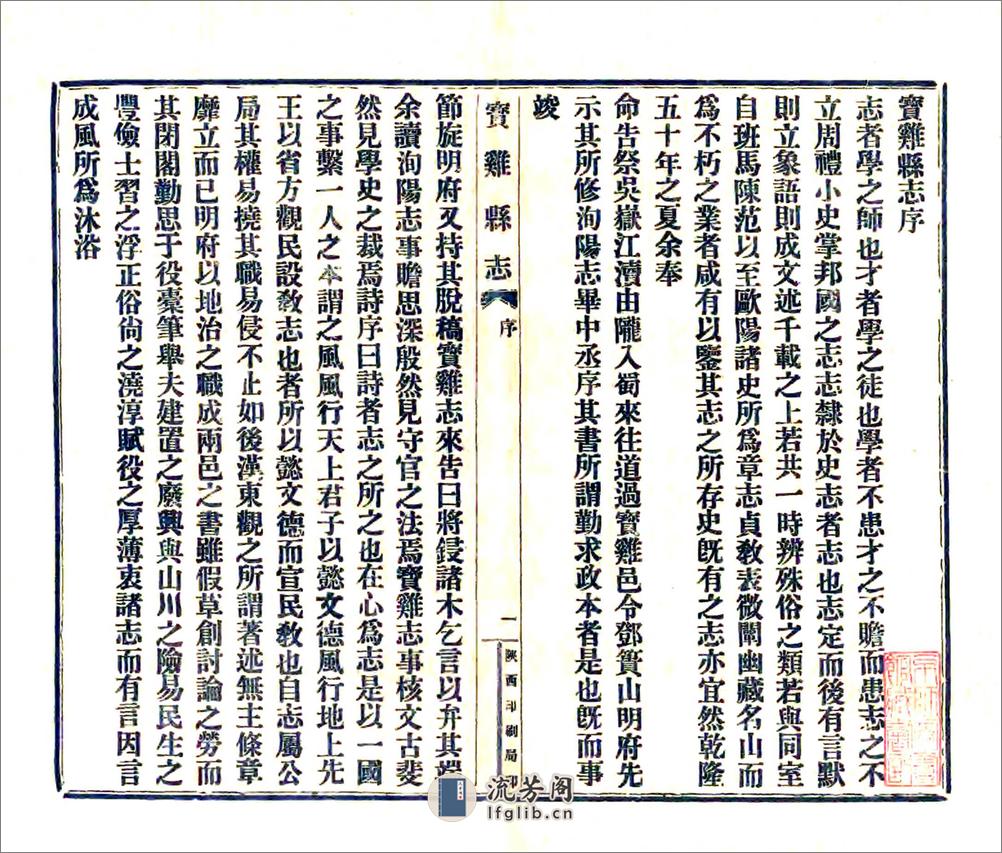 寶雞縣志序
志者學之師也才者學之徒也學者不患才之不贍而患志之不
立周禮小史掌邦國之志志隸於史志者志也志定而後有言默
則立象語則成文述千載之上若共一時辨殊俗之類若與同室
自班馬陳范以至歐陽諸史所爲章志貞教表微闡幽藏名山而
爲不朽之業者咸有以鑒其志之所存史旣有之志亦宜然乾隆
五十年之夏余奉
命告祭吳嶽江瀆由隴入蜀來往道過寶雞邑令鄧簣山明府先
示其所修洵陽志畢中丞序其書所謂勤求政本者是也旣而事
竣
寶雞縣志 序 一 陝西印刷局印
節旋明府又持其脫稿寶雞志來告曰將鋟諸木乞言以弁其端
余讀洵陽志事贍思深殷然見守官之法焉寶雞志事核文古斐
然見學史之裁焉詩序曰詩者志之所之也在心爲志是以一國
之事繫一人之本謂之風風行天上君子以懿文德風行地上先
王以省方觀民設教志也者所以懿文德而宣民教也自志屬公
局其權易撓其職易侵不止如後漢東觀之所謂著述無主條章
靡立而已明府以地治之職成兩邑之書雖假草創討論之勞而
其閉閣勤思于役橐筆舉夫建置之廢興與山川之險易民生之
豐儉士習之浮正俗尙之澆淳賦役之厚薄衷諸志而有言因言
成風所爲沐浴
流芳阁
lfglib.cn